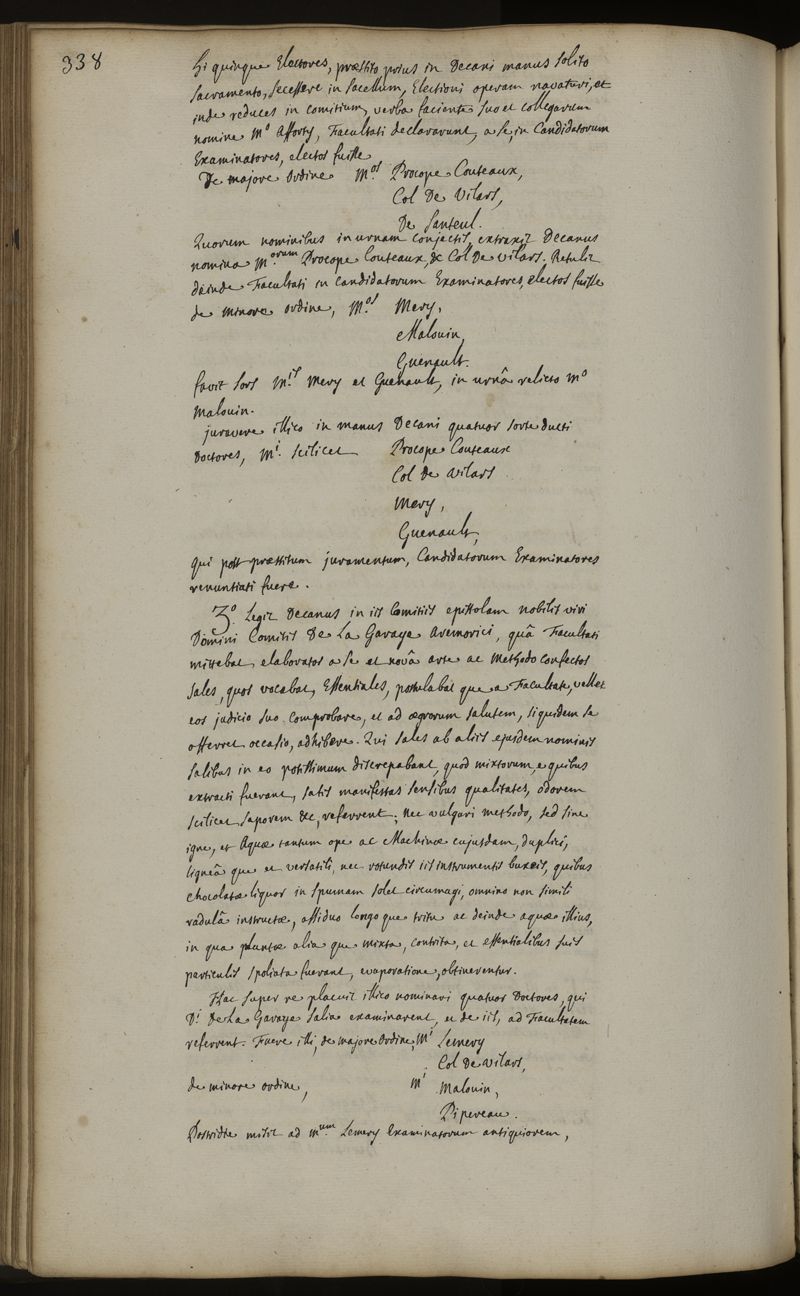 338
hi quinque Electores, præstito prius in Decani manus solito
sacramento, secessere in sacellum, Electioni operam navaturi, et
inde reduces in comitium, verba faciente suo et collegarum
nomine Mo Afforty, Facultati declararunt, a se, in Candidatorum
Examinatores, electos fuisse
De majore ordine Mos Procope Couteaux,
Col De Vilars,
De Santeul.
Quorum nominibus in urnam conjectis, extraxit Decanus
nomina Morum Procope Couteaux, & Col De Vilars. Retulit
deinde Facultati in candidatorum Examinatores, electos fuisse
de minore ordine, Mos Mery,
Malouin,
Guenault.
favit sors Mis Mery et Guenault, in urnâ relicto Mo
Malouin.
juravere illico in manus Decani quatuor sorte ducti
Doctores, Mi scilicet Procope Couteaux
Col de Vilars
Mery,
Guenault,
qui post præstitum juramentum, Candidatorum Examinatores
renuntiati fuere.
3o Legit Decanus in iis Comitiis epistolam nobilis viri
Domini Comitis De La Garaye Armorici, quâ Facultati
mittebat, elaboratos a se et novâ arte ac methodo confectos
sales, quos vocabat, Essentiales, postulabat que a Facultate, vellet
eos judicio suo comprobare, et ad ægrorum salutem, siquidem se
offerret occasio, adhibere. Qui sales ab aliis ejusdem nominis
salibus in eo potissimum discrepabant, quod mixtorum, e quibus
extracti fuerant, satis manifestas sensibus qualitates, odorem
scilicet saporem &c, referrent; nec vulgari methodo, sed sine
igne, et Aquæ tantum ope ac Machinæ cujusdam, duplici,
ligneâ que et versatili, nec rotundis iis instrumentis buxeis, quibus
chocolatæ liquor in spumam solet circumagi, omnino non simili
radulâ instructæ, assiduo longo que tritu ac deinde aquæ illius,
in qua plantæ alia que mixta, contrita, et essentialibus suis
particulis spoliata fuerant, evaporatione, obtinerentur.
Hac super re placuit illico nominari quatuor Doctores, qui
Di De La Garaye salia examinarent, et de iis, ad Facultatem
referrent. Fuere illi, de majore ordine, Mi Lemery
Col De Vilars,
de minore ordine, Mi Malouin,
Pipereau.
Postridie misit ad Mum Lemery Examinatorum antiquiorem,